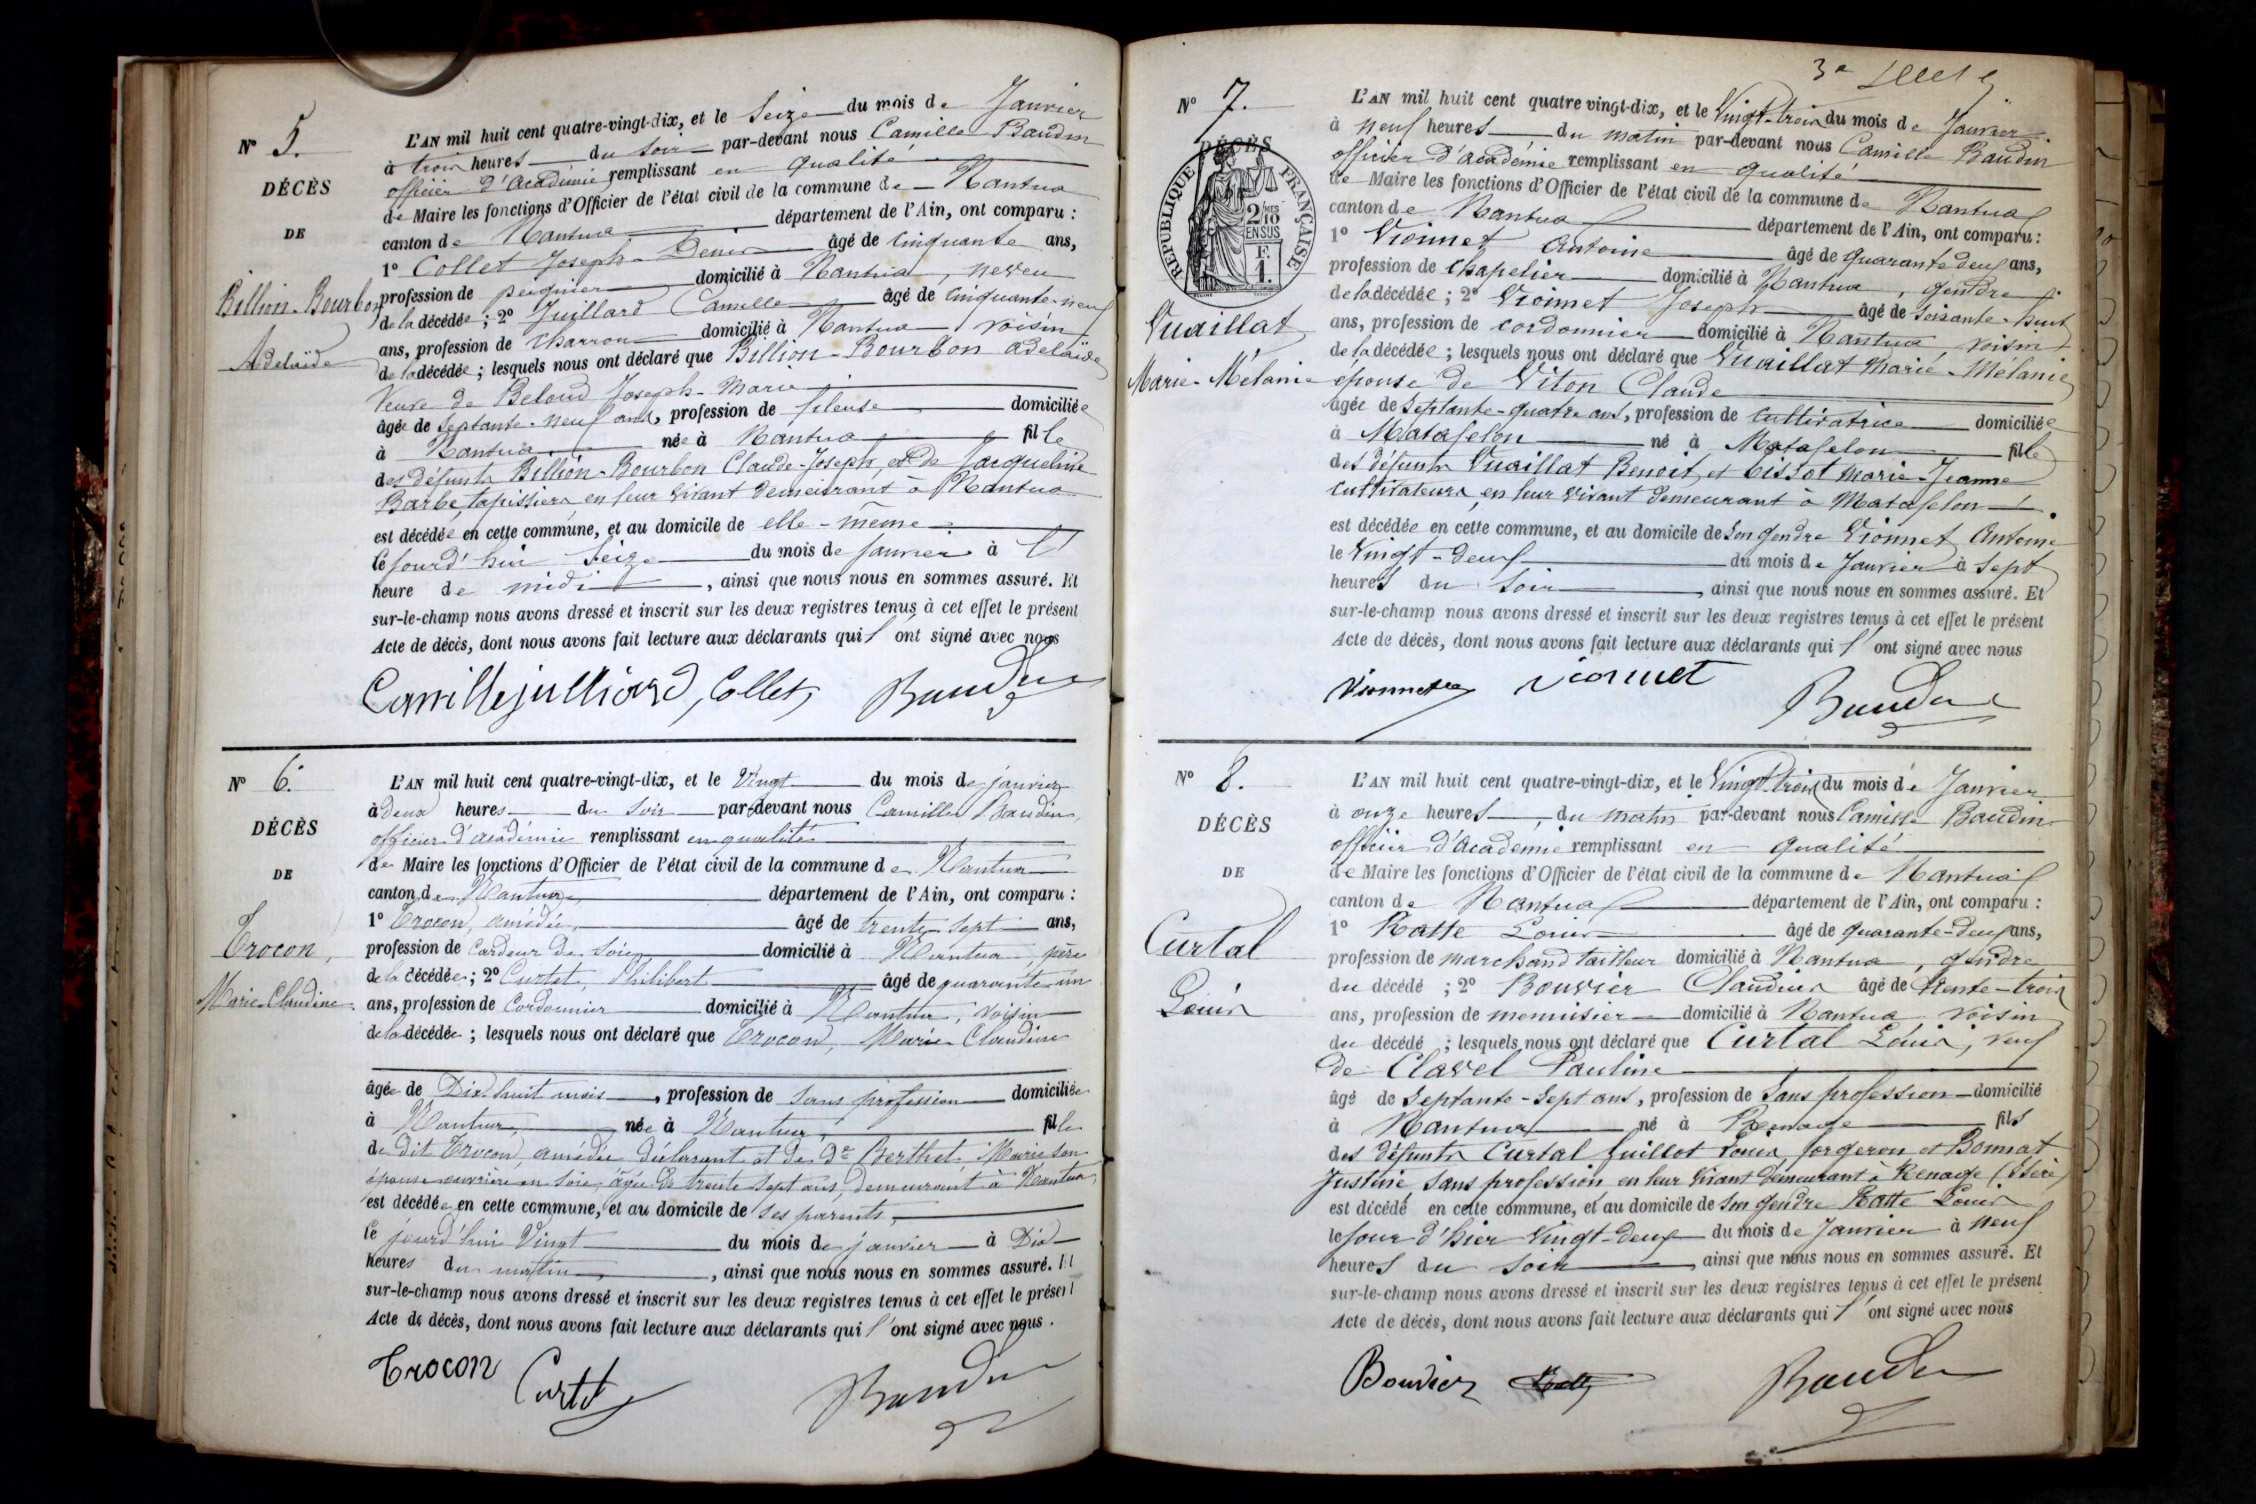 N° 5.
DÉCÈS
DE
Billion-Bourbon
Adelaïde
L'AN mil huit cent quatre-vingt-dix, et le Seize du mois de Janvier
à trois heures du soir par-devant nous Camille Baudin
officier d'Académie remplissant en qualité
de Maire les fonctions d'Officier de l'état civil de la commune de Nantua
canton de Nantua département de l'Ain, ont comparu :
1° Collet Joseph-Denis âgé de Cinquante ans,
profession de peignier domicilié à Nantua, neveu
de la décédée ; 2° Juillard Camille âgé de cinquante-neuf
ans, profession de charron domicilié à Nantua voisin
de la décédée ; lesquels nous ont déclaré que Billion-Bourbon adelaïde
Veuve de Beloud Joseph-Marie
âgée de septante-neuf ans, profession de fileuse domiciliée
à Nantua née à Nantua fille
des défunts Billion-Bourbon Claude-Joseph, et de Jacqueline
Barbe, tapissiers en leur vivant demeurant à Nantua
est décédée en cette commune, et au domicile de elle-même
le jourd'hui Seize du mois de janvier à l'
heure de midi, ainsi que nous nous en sommes assuré. Et
sur-le-champ nous avons dressé et inscrit sur les deux registres tenus à cet effet le présent
Acte de décès, dont nous avons fait lecture aux déclarants qui l'ont signé avec nous
Camille julliard, Collet, Baudin
N° 6.
DÉCÈS
DE
Trocon,
Marie-Claudine.
L'AN mil huit cent quatre-vingt-dix, et le Vingt du mois de janvier
à deux heures du soir par-devant nous Camille Baudin,
officier d'académie remplissant en qualité
de Maire les fonctions d'Officier de l'état civil de la commune de Nantua
canton de Nantua département de l'Ain, ont comparu :
1° Trocon, amédée, âgé de trente sept ans,
profession de Cardeur de Soie domicilié à Nantua, père
de la décédée ; 2° Curtet, Philibert âgé de quarante-un
ans, profession de Cordonnier domicilié à Nantua, voisin
de la décédée ; lesquels nous ont déclaré que Trocon, Marie Claudine
âgée de Dix-huit mois, profession de sans profession domiciliée
à Nantua, née à Nantua, fille
de dit Trocon, amédée déclarant et de De Berthet Marie son
épouse ouvrière en soie, âgée de trente sept ans, demeurant à Nantua,
est décédée en cette commune, et au domicile de ses parents,
le jourd'hui Vingt du mois de janvier à Dix
heures du matin, ainsi que nous nous en sommes assuré. Et
sur-le-champ nous avons dressé et inscrit sur les deux registres tenus à cet effet le présent
Acte de décès, dont nous avons fait lecture aux déclarants qui l'ont signé avec nous.
Trocon Curtet Baudin
N° 7.
DÉCÈS
RÉPUBLIQUE FRANÇAISE
2/10
EN SUS
F. 1.
Vuaillat
Marie-Mélanie
L'AN mil huit cent quatre vingt-dix, et le Vingt-trois du mois de Janvier
à neuf heures du matin par-devant nous Camille Baudin
officier d'Académie remplissant en qualité
de Maire les fonctions d'Officier de l'état civil de la commune de Nantua
canton de Nantua département de l'Ain, ont comparu :
1° Vionnet Antoine âgé de quarante deux ans,
profession de chapelier domicilié à Nantua, gendre
de la décédée ; 2° Vionnet Joseph âgé de soixante-huit
ans, profession de cordonnier domicilié à Nantua voisin
de la décédée ; lesquels nous ont déclaré que Vuaillat Marie-Mélanie
épouse de Viton Claude
âgée de septante-quatre ans, profession de cultivatrice domiciliée
à Matafelon né à Matafelon fille
des défunts Vuaillat Benoit, et Cissot Marie-Jeanne
cultivateurs, en leur vivant demeurant à Matafelon
est décédée en cette commune, et au domicile de son gendre Vionnet Antoine
le Vingt-deux du mois de Janvier à sept
heures du soir, ainsi que nous nous en sommes assuré. Et
sur-le-champ nous avons dressé et inscrit sur les deux registres tenus à cet effet le présent
Acte de décès, dont nous avons fait lecture aux déclarants qui l'ont signé avec nous
Vionnet Vionnet Baudin
N° 8.
DÉCÈS
DE
Curtal
Louis
L'AN mil huit cent quatre-vingt-dix, et le Vingt-trois du mois de Janvier
à onze heures du matin par-devant nous Camille Baudin
officier d'Académie remplissant en qualité
de Maire les fonctions d'Officier de l'état civil de la commune de Nantua
canton de Nantua département de l'Ain, ont comparu :
1° Ratte Louis âgé de quarante-deux ans,
profession de marchand tailleur domicilié à Nantua, gendre
du décédé ; 2° Bouvier Claudius âgé de trente-trois
ans, profession de menuisier domicilié à Nantua voisin
du décédé ; lesquels nous ont déclaré que Curtal Louis, veuf
de Clavel Pauline
âgé de septante-sept ans, profession de Sans profession domicilié
à Nantua né à Renage fils
des défunts Curtal Guillot Louis, forgeron et Bonnat
Justine sans profession en leur vivant demeurant à Renage (Isère)
est décédé en cette commune, et au domicile de son gendre Ratte Louis
le jour d'hier Vingt-deux du mois de Janvier à neuf
heures du soir ainsi que nous nous en sommes assuré. Et
sur-le-champ nous avons dressé et inscrit sur les deux registres tenus à cet effet le présent
Acte de décès, dont nous avons fait lecture aux déclarants qui l'ont signé avec nous
Bouvier Ratte Baudin